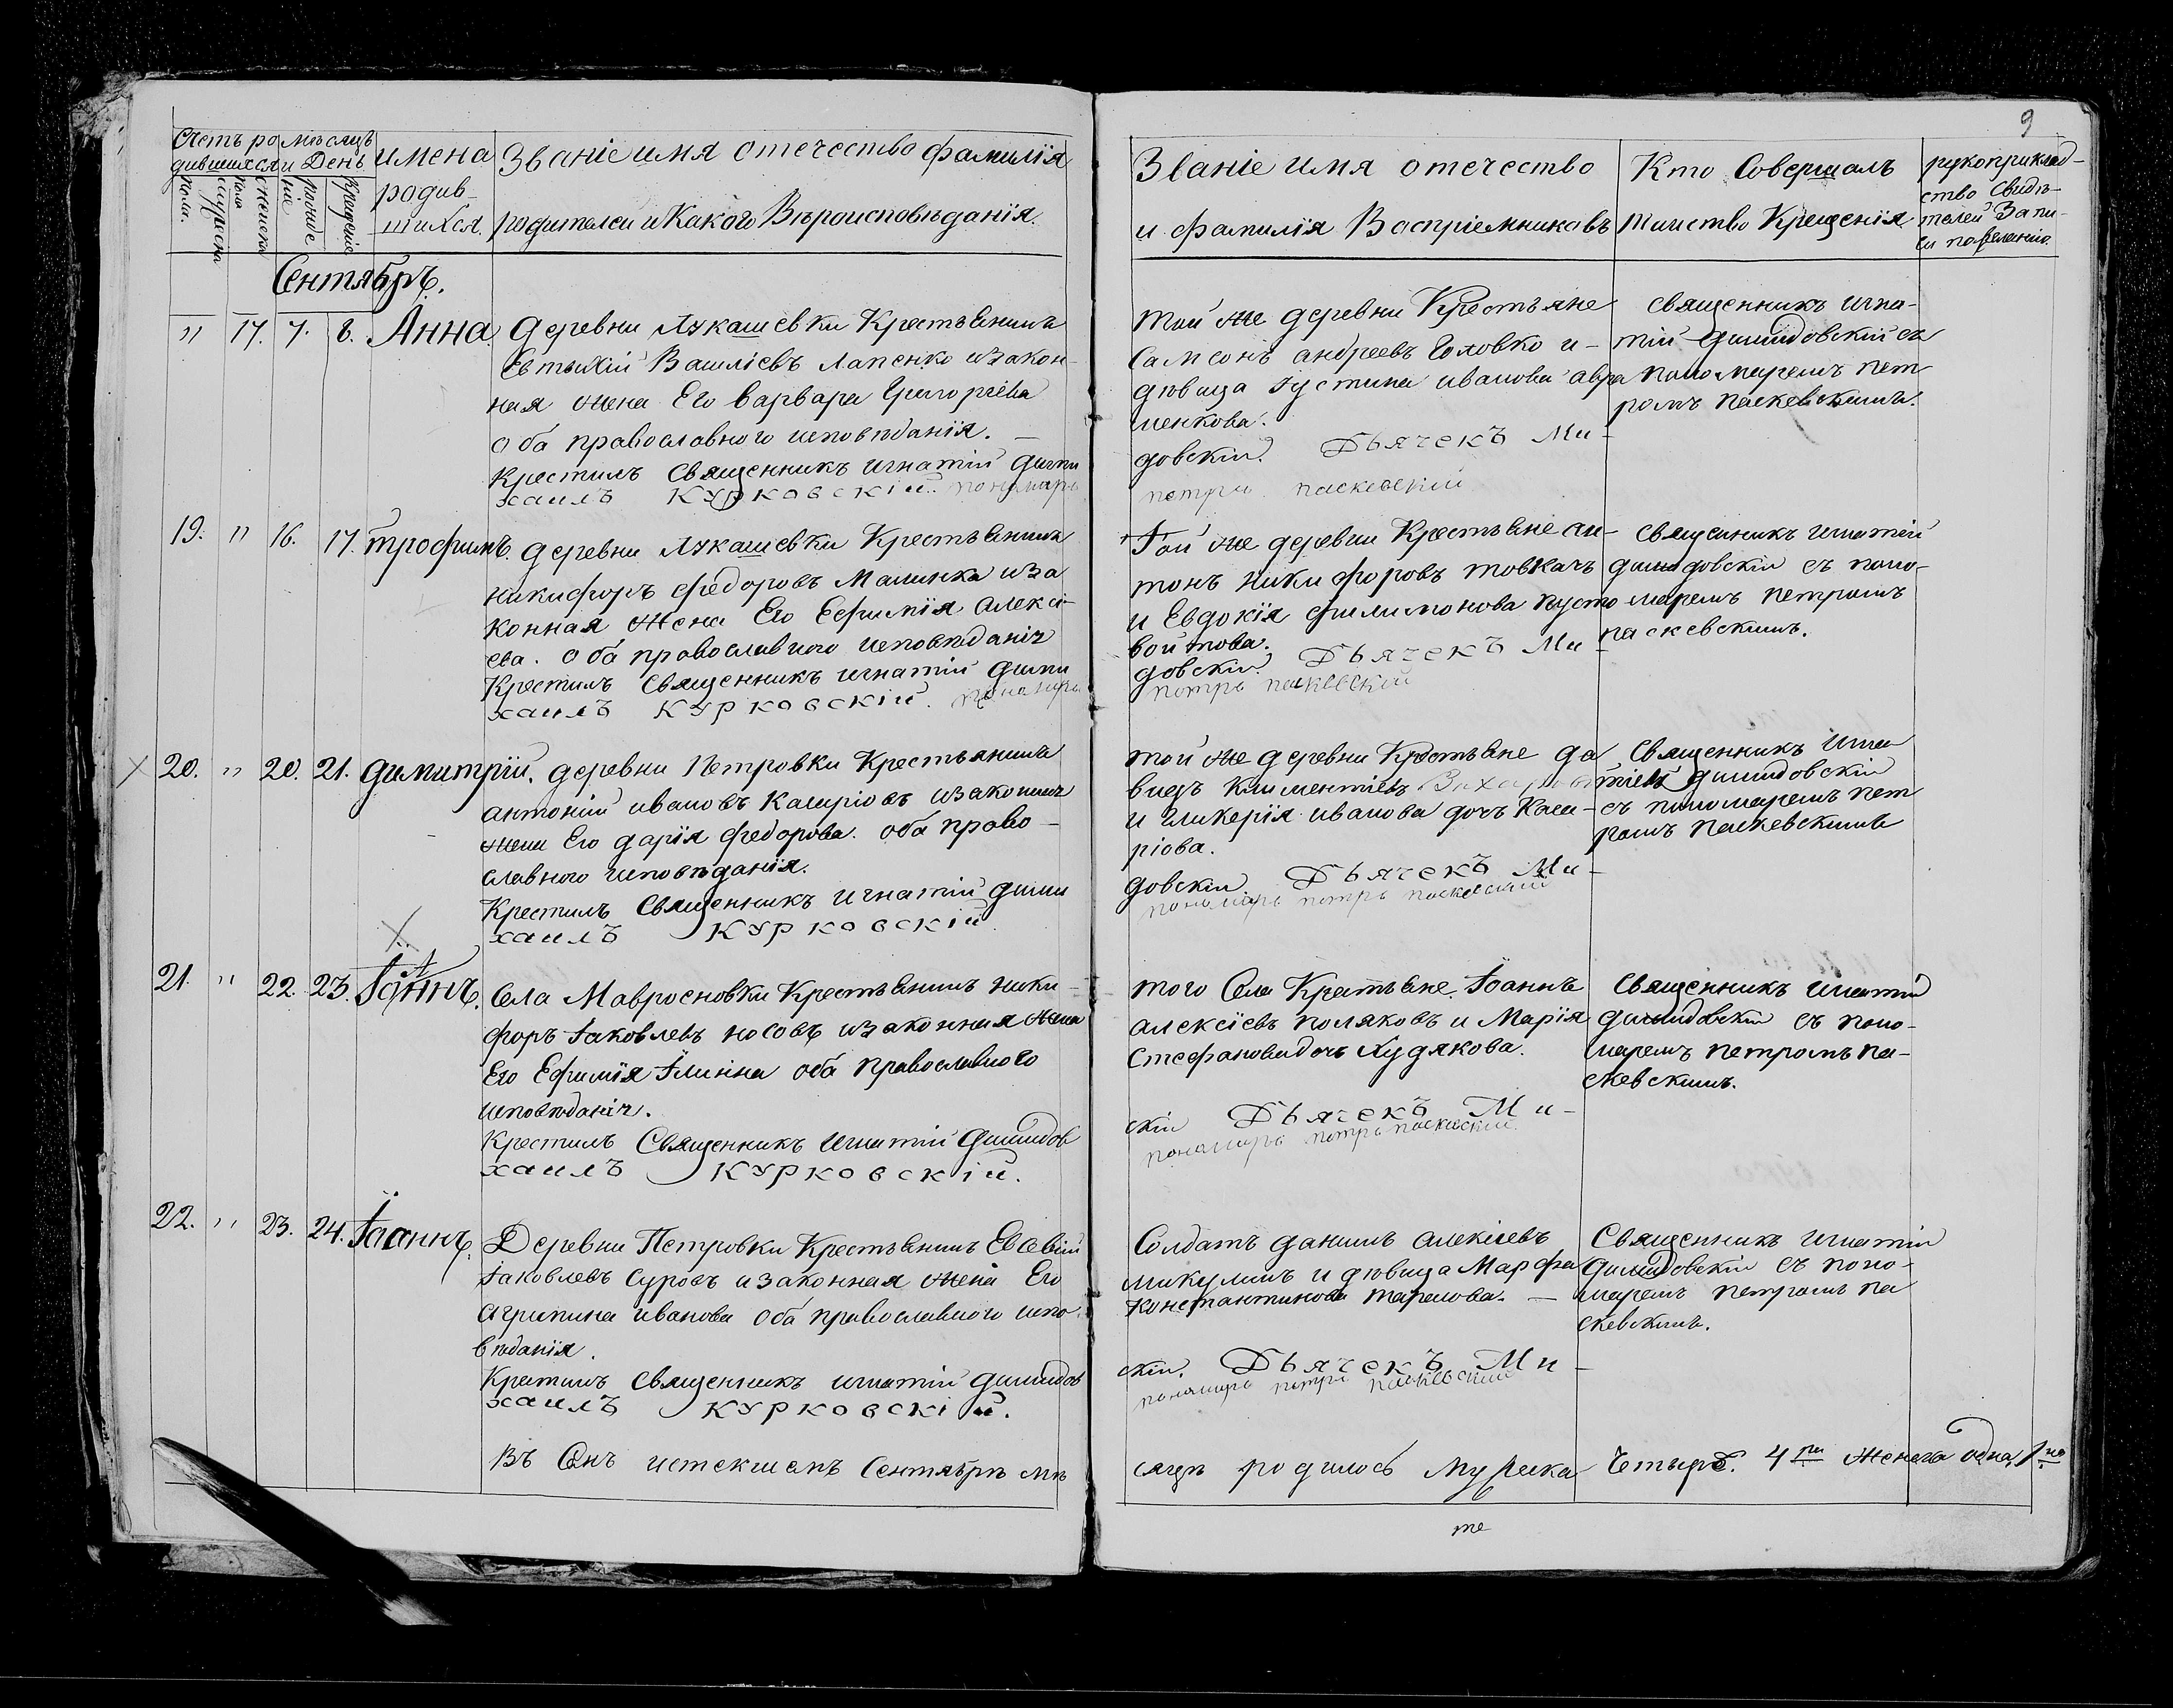 9
Счетъ ро
дившихся
мѣсяцъ
и День
имена
родив-
шихся.
Званіе имя отечество фамилія
родителей и какого Вѣроисповѣданія.
Званіе имя отечество
и фамилія Воспріемниковъ
Кто Совершалъ
таинство Крещенія
рукоприклад-
ство свидѣ-
телей Запи-
си по желанію.
мужеска
пола.
женска
пола
рожде
ніе
крещеніе
Сентябрь.
" 17. 7. 8. Анна
Деревни Лукашевки Крестьянинъ
Евтыхій Василіевъ Лапенко и закон-
ная жена Его Варвара Григорьева
оба православного исповѣданія. —
Крестилъ Священникъ игнатій дими
хаилъ Курковскій. пономарь
той же деревни Крестьяне
Самсонъ андреевъ Головко и -
дѣвица Іустина иванова авра
менкова.
довскій. Дьячекъ Ми-
петръ паскевскій
Священникъ игна-
тій димидовскій съ
пономаремъ пет
ромъ паскевскимъ.
19. " 16. 17. трофимъ.
деревни Лукашевки Крестьянинъ
никифоръ федоровъ Малинка и за
конная жена Его Ефимія Алексі-
ева. оба православного исповѣданія
Крестилъ Священникъ игнатій дими
хаилъ Курковскій. пономарь
Той же деревни Крестьяне ан-
тонъ никифоровъ товкачъ
и Евдокія филимонова пусто
войтова.
довскій. Дьячекъ Ми-
петръ паскевскій
Священникъ игнатій
димидовскій съ поно-
маремъ петромъ
паскевскимъ.
20. " 20. 21. димитрій.
деревни Петровки Крестьянинъ
антоній ивановъ Касиріовъ и законная
жена Его дарія федорова. оба право-
славного исповѣданія.
Крестилъ Священникъ игнатій дими
хаилъ Курковскій
той же деревни Крестьяне да
видъ Климентіевъ
и гликерія иванова дочь Каси-
ріова.
довскій Дьячекъ Ми-
пономарь петръ паскевскій
Священникъ Игна
тій димидовскій
съ пономаремъ пет
ромъ паскевскимъ
21. " 22. 23. Іоаннъ.
Села Мавросновки Крестьянинъ ники-
форъ Іаковлевъ носовъ и законная жена
Его Ефимія Ілинна оба православного
исповѣданія.
Крестилъ Священникъ игнатій димидов
хаилъ Курковскій.
того Села Крестьяне Іоаннъ
алексіевъ поляковъ и Марія
стефанова дочь Худякова.
скій Дьячекъ Ми-
пономарь петръ паскевскій.
Священникъ игнатій
димидовскій съ поно-
маремъ петромъ па-
скевскимъ.
22. " 23. 24. Іоаннъ.
Деревни Петровки Крестьянинъ Евсевій
Іаковлевъ Суровъ и законная жена Его
агрипина иванова оба православного испо-
вѣданія.
Крестилъ Священникъ игнатій димидов
хаилъ Курковскій.
Солдатъ данилъ алексіевъ
микулинъ и дѣвица Марфа
константинова тарасова. —
скій. Дьячекъ Ми-
пономарь петръ паскевскій
Священникъ игнатій
димидовскій съ поно-
маремъ петромъ па
скевскимъ.
Въ Семъ истекшемъ Сентябрѣ мѣ
сяцѣ родилось мужеска Четыре. 4ри женска одна, 1на
те